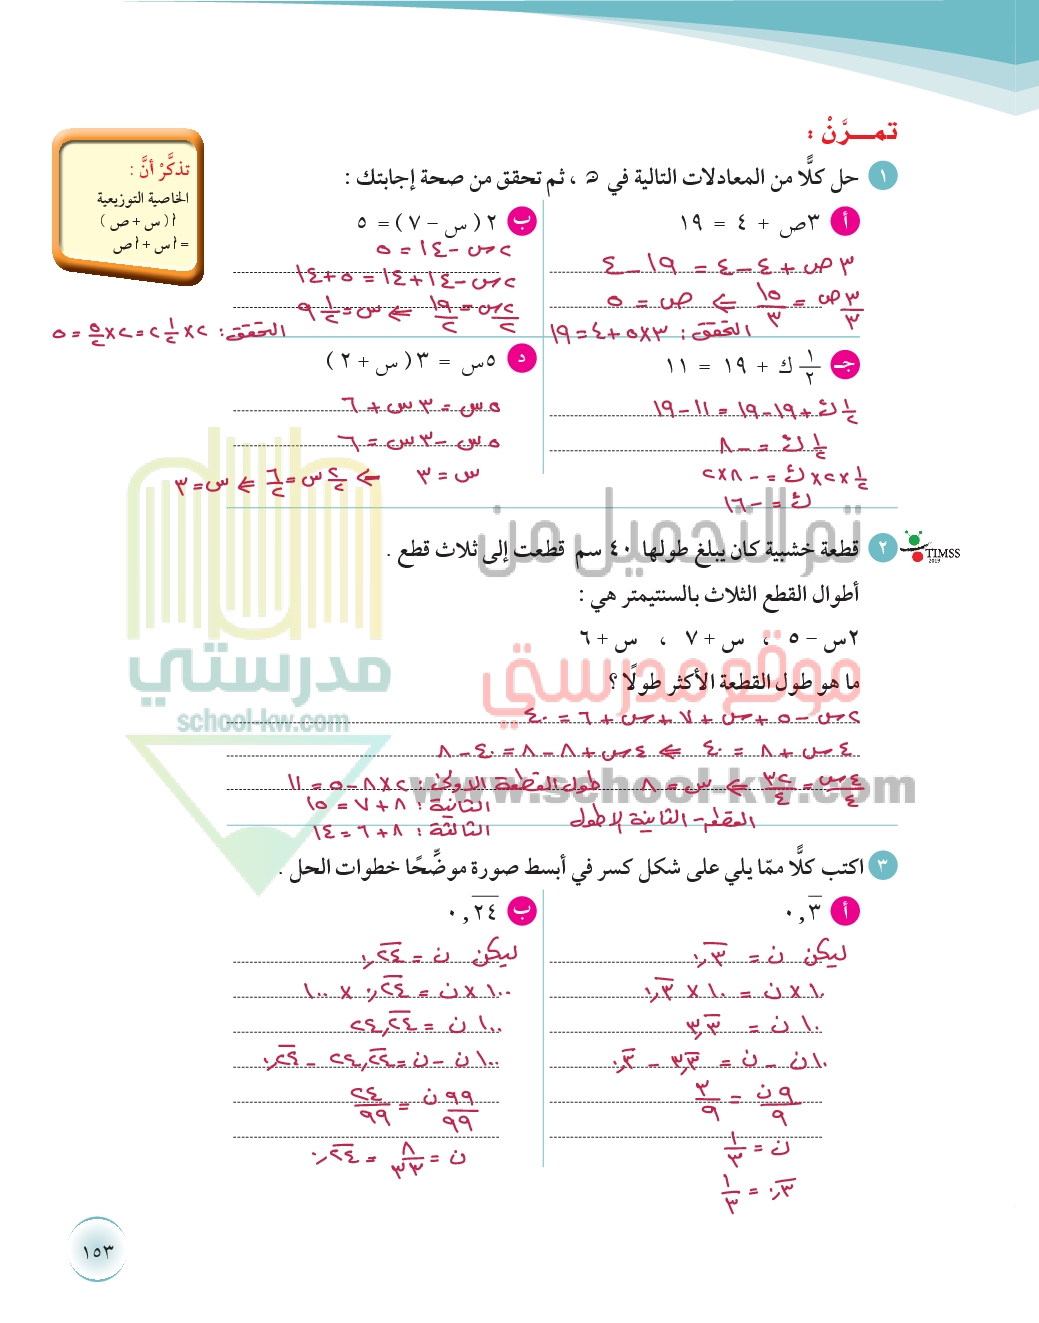 تمــرَّنْ :
تذكَّرْ أنَّ :
الخاصية التوزيعية
أ ( س + ص )
= أ س + أ ص
١ حل كلًّا من المعادلات التالية في ن ، ثم تحقق من صحة إجابتك :
أ ٣ص + ٤ = ١٩
٣ص + ٤ – ٤ = ١٩ – ٤
٣/٣ ص = ١٥/٣ ⇐ ص = ٥
التحقق : ٣×٥ + ٤ = ١٩
ب ٢ ( س – ٧ ) = ٥
٢س – ١٤ = ٥
٢س – ١٤ + ١٤ = ٥ + ١٤
٢س/٢ = ١٩/٢ ⇐ س = ٩ ١/٢
التحقق : ٢×٢ ١/٢ = ٢×٥/٢ = ٥
جـ ١/٢ ك + ١٩ = ١١
١/٢ ك + ١٩ – ١٩ = ١١ – ١٩
١/٢ ك = – ٨
١/٢ × ٢ × ك = – ٨ × ٢
ك = – ١٦
د ٥س = ٣ ( س + ٢ )
٥س = ٣س + ٦
٥س – ٣س = ٦
٢/٢ س = ٦/٢ ⇐ س = ٣
س = ٣
TIMSS
2019
٢ قطعة خشبية كان يبلغ طولها ٤٠ سم قطعت إلى ثلاث قطع .
أطوال القطع الثلاث بالسنتيمتر هي :
٢س – ٥ ، س + ٧ ، س + ٦
ما هو طول القطعة الأكثر طولًا ؟
٢س – ٥ + س + ٧ + س + ٦ = ٤٠
٤س + ٨ = ٤٠ ⇐ ٤س + ٨ – ٨ = ٤٠ – ٨
٤س/٤ = ٣٢/٤ ⇐ س = ٨ طول القطعة الاولى : ٢×٨ – ٥ = ١١
الثانية : ٨ + ٧ = ١٥
القطعة الثانية الاطول
الثالثة : ٨ + ٦ = ١٤
٣ اكتب كلًّا ممّا يلي على شكل كسر في أبسط صورة موضِّحًا خطوات الحل .
أ ٠,٣̅
ليكن ن = ٠,٣̅
١٠ × ن = ١٠ × ٠,٣̅
١٠ ن = ٣,٣̅
١٠ن – ن = ٣,٣̅ – ٠,٣̅
٩ن/٩ = ٣/٩
ن = ١/٣
٠,٣̅ = ١/٣
ب ٠,٢̅٤̅
ليكن ن = ٠,٢̅٤̅
١٠٠ × ن = ٠,٢̅٤̅ × ١٠٠
١٠٠ ن = ٢٤,٢̅٤̅
١٠٠ن – ن = ٢٤,٢̅٤̅ – ٠,٢̅٤̅
٩٩ن/٩٩ = ٢٤/٩٩
ن = ٨/٣٣ = ٠,٢̅٤̅
تم التحميل من
موقع مدرستي
www.school-kw.com
مدرستي
school-kw.com
١٥٣